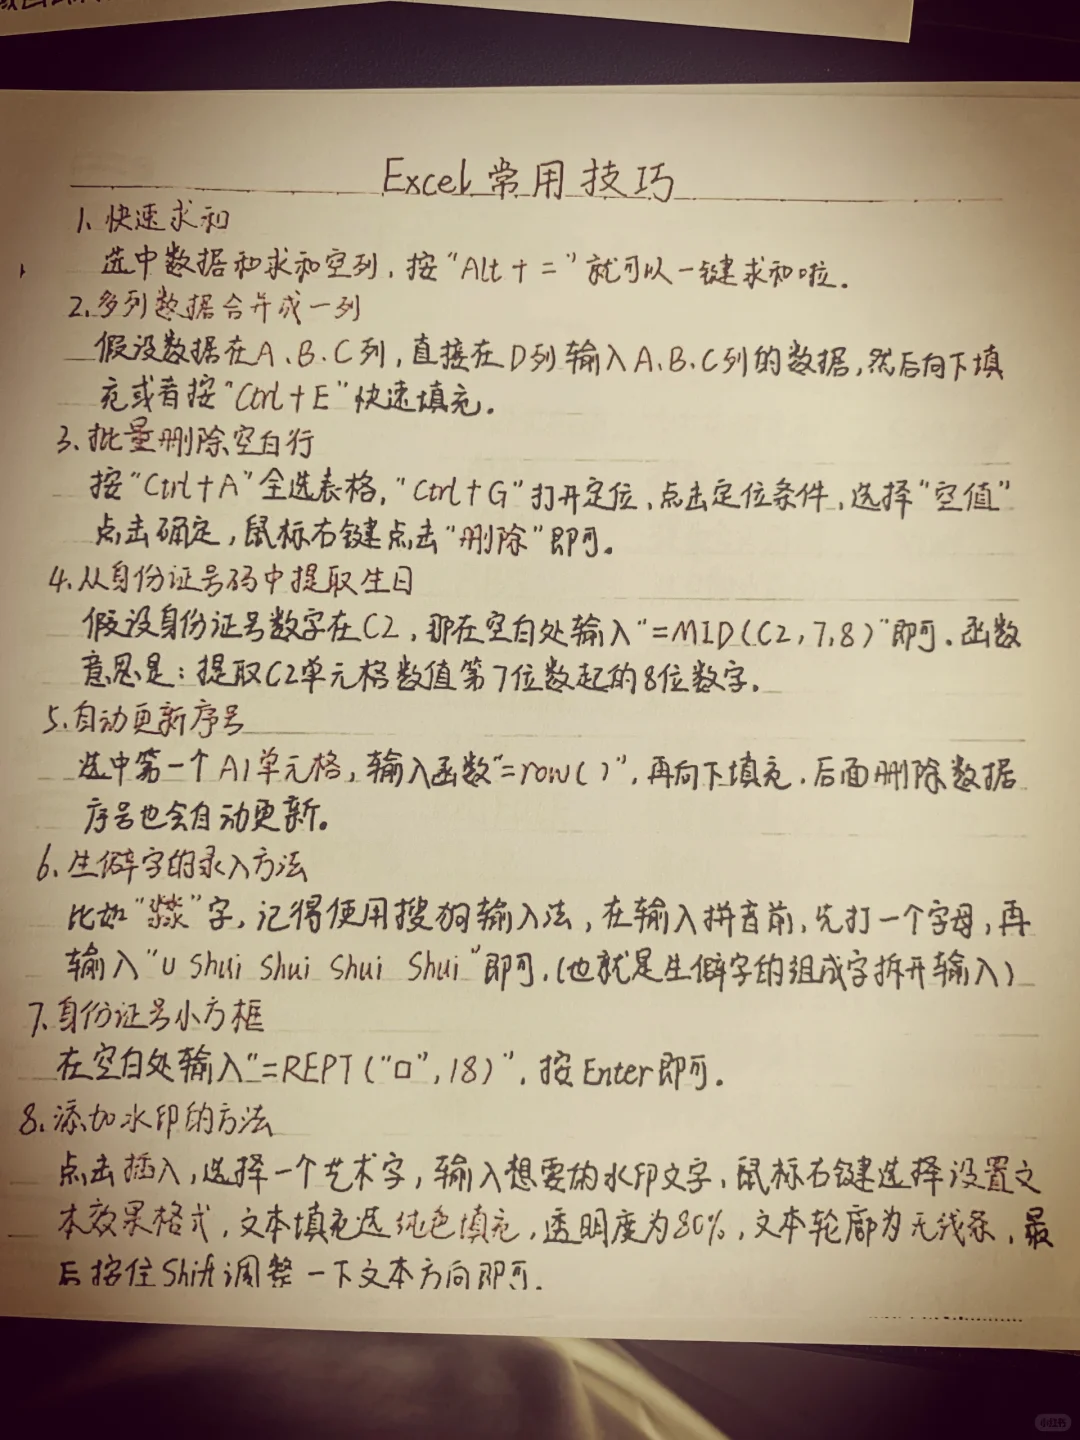 Excel 常用技巧
1、快速求和
选中数据和求和空列，按“Alt + =”就可以一键求和啦.
2.多列数据合并成一列
假设数据在A、B、C列，直接在D列输入A、B、C列的数据，然后向下填
充或者按“Ctrl+E”快速填充.
3、批量删除空白行
按“Ctrl+A”全选表格，“Ctrl+G”打开定位、点击定位条件，选择“空值”
点击确定，鼠标右键点击“删除”即可。
4、从身份证号码中提取生日
假设身份证号数字在C2，那在空白处输入“=MID(C2,7,8)”即可.函数
意思是：提取C2单元格数值第7位数起的8位数字.
5、自动更新序号
选中第一个A1单元格，输入函数“=row()”，再向下填充.后面删除数据
序号也会自动更新。
6、生僻字的录入方法
比如“”字，记得使用搜狗输入法，在输入拼音前，先打一个字母，再
输入“U Shui Shui Shui Shui”即可.(也就是生僻字的组成字拆开输入)
7、身份证号小方框
在空白处输入“=REPT(“口”,18)”，按Enter即可.
8、添加水印的方法
点击插入，选择一个艺术字，输入想要的水印文字、鼠标右键选择设置文
本效果格式，文本填充选纯色填充，透明度为80%，文本轮廓为无线条，最
后按住Shift调整一下文本方向即可.
小红书